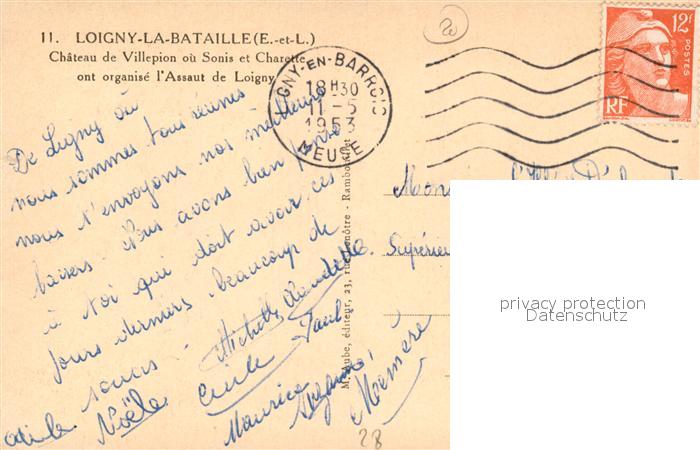 11. LOIGNY-LA-BATAILLE (E.-et-L.)
Château de Villepion où Sonis et Charette
ont organisé l'Assaut de Loigny
GNY-EN-BARROIS
18H30
11-5
1953
MEUSE
12F
POSTES
RF
De Ligny où
nous sommes tous réunis
nous t'envoyons nos meilleurs
baisers. Nous avons bien pensé
à toi qui doit avoir ces
jours derniers beaucoup de
soucis.
Michelle Claudette
Cécile Paul
Noële
Maurice Suzanne
Mémère
Mon
Supérieu
M. Aube, éditeur, 23, rue Lenôtre - Rambouillet
privacy protection
Datenschutz
28